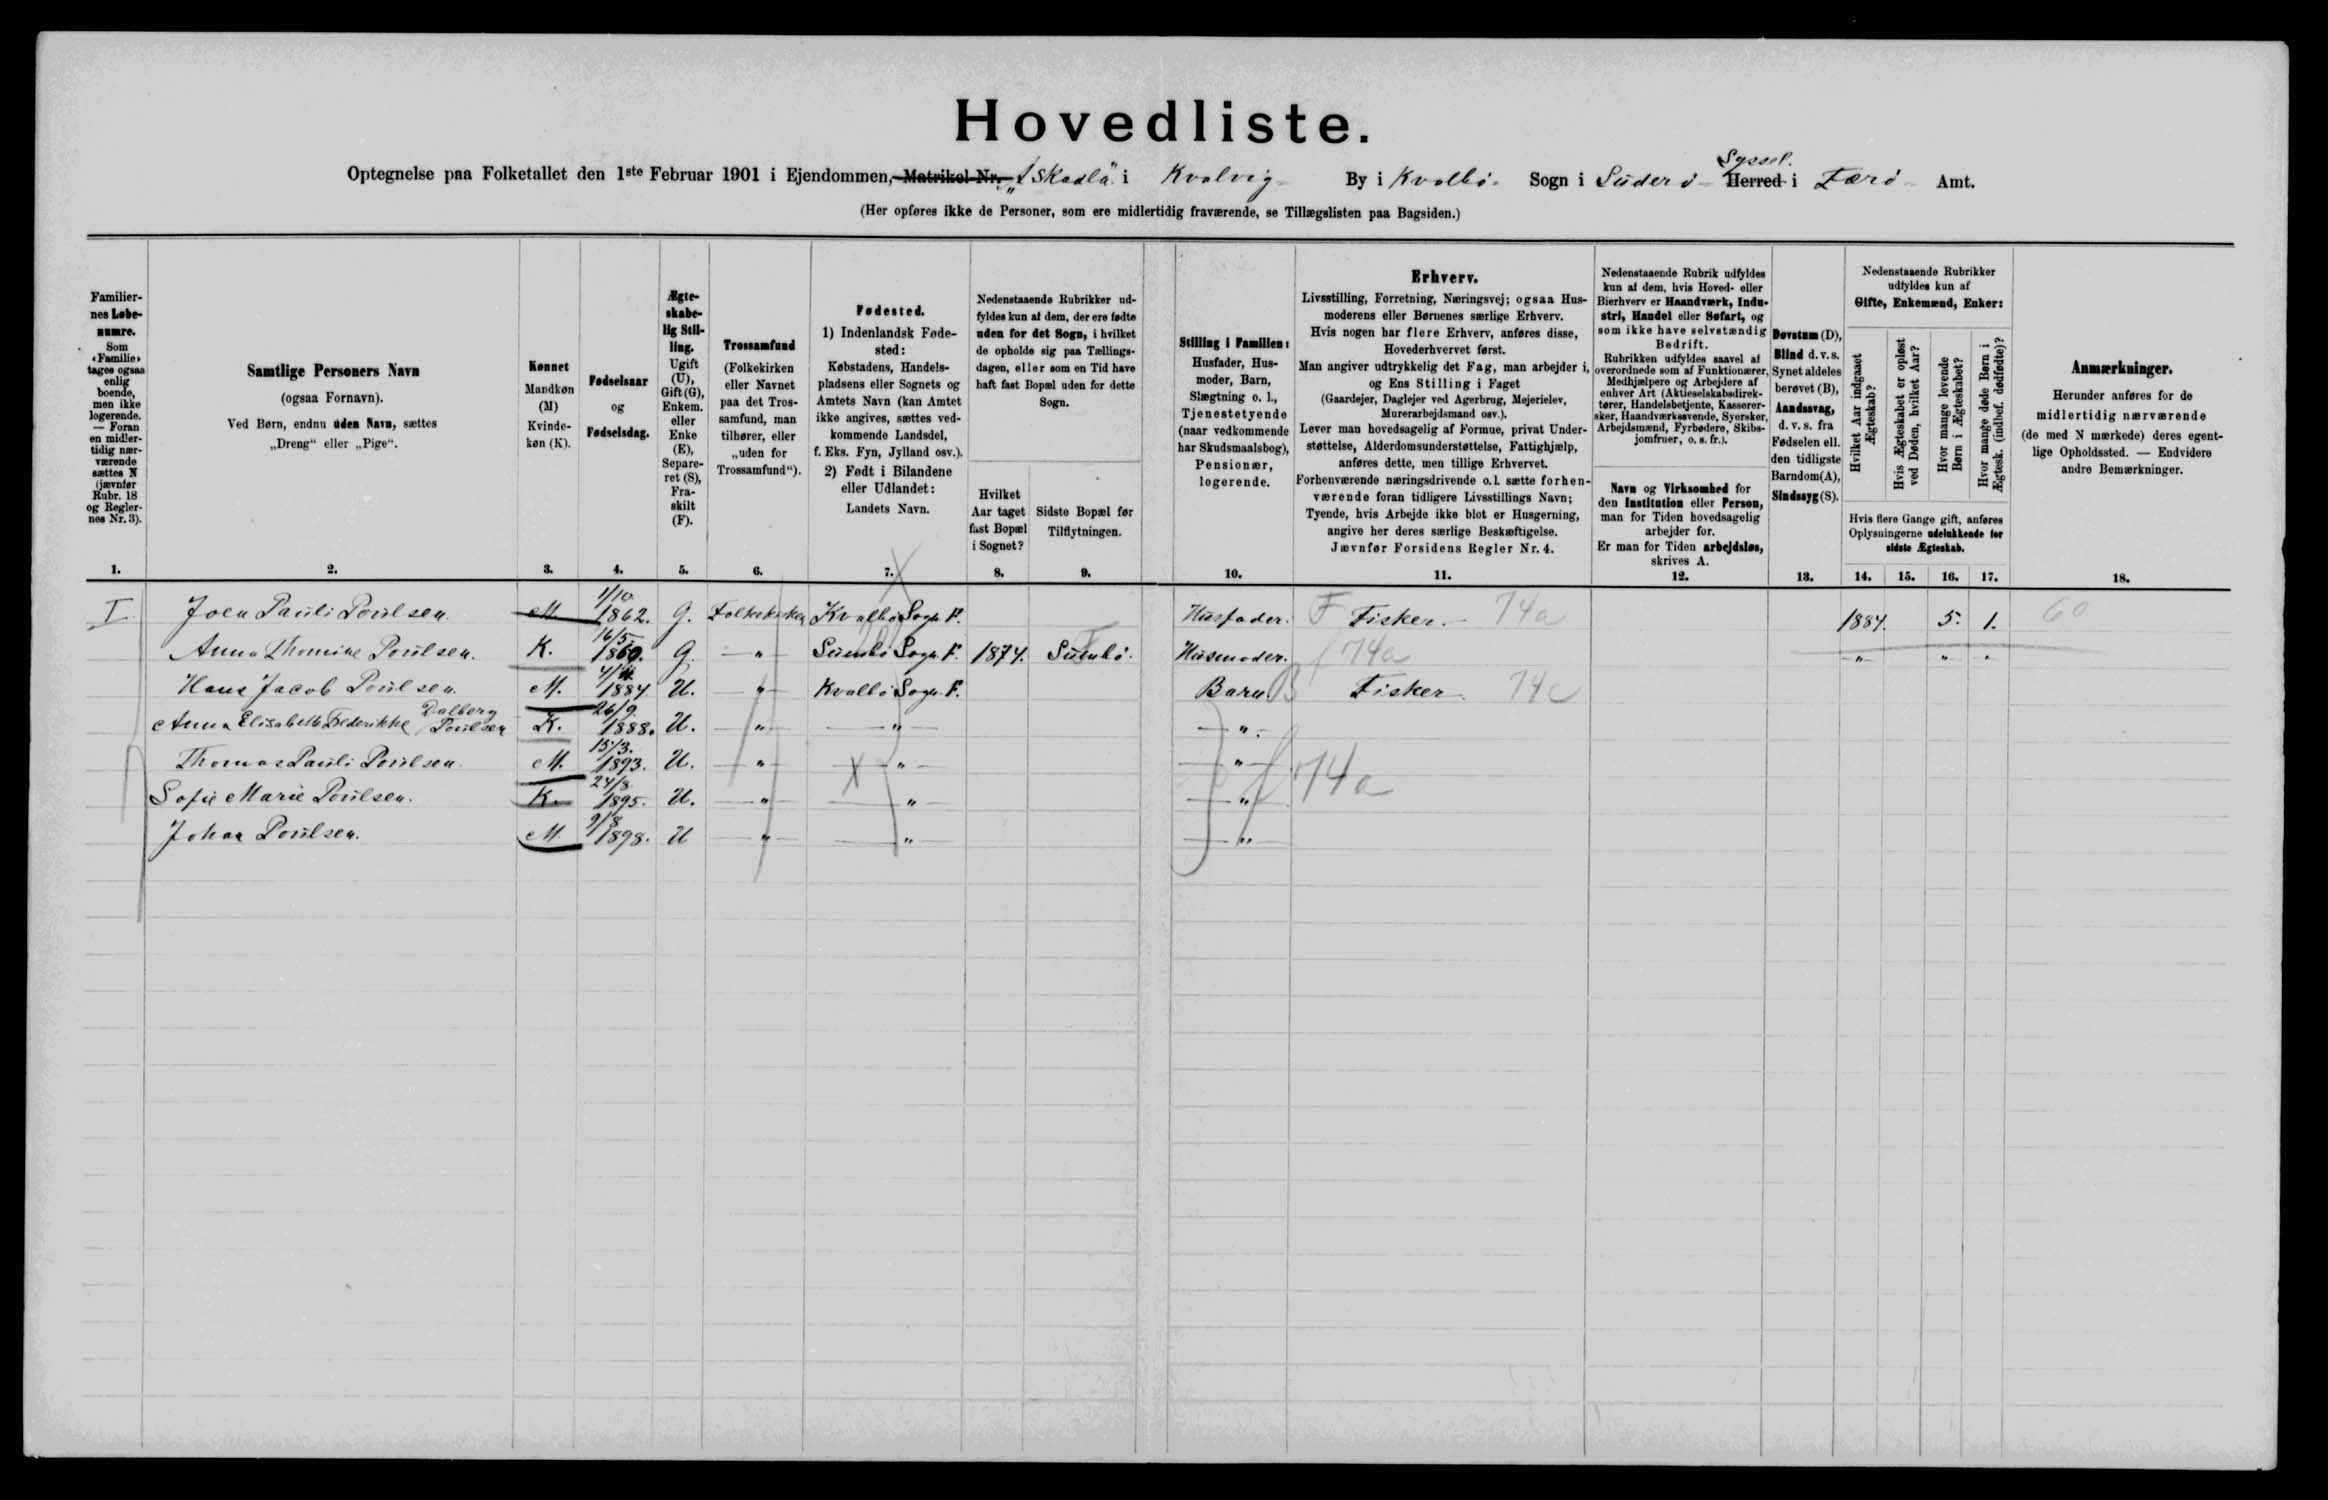 Hovedliste.
Optegnelse paa Folketallet den 1ste Februar 1901 i Ejendommen, Matrikel Nr. i Kvalvig By i Kvalbø Sogn i Suderø Herred Syssel. i Færø Amt.
(Her opføres ikke de Personer, som ere midlertidig fraværende, se Tillægslisten paa Bagsiden.)
Familiernes Løbenumre.
Som «Familie» tages ogsaa enlig boende, men ikke logerende. — Foran en midlertidig nærværende sættes N (jævnfør Rubr. 18 og Reglernes Nr. 3).
1.
Samtlige Personers Navn
(ogsaa Fornavn).
Ved Børn, endnu uden Navn, sættes
„Dreng“ eller „Pige“.
2.
Kønnet
Mandkøn (M) Kvindekøn (K).
3.
Fødselsaar
og
Fødselsdag.
4.
Ægteskabelig Stilling.
Ugift (U), Gift (G), Enkem. eller Enke (E), Separeret (S), Fraskilt (F).
5.
Trossamfund
(Folkekirken eller Navnet paa det Trossamfund, man tilhører, eller „uden for Trossamfund“).
6.
Fødested.
1) Indenlandsk Fødested:
Købstadens, Handelspladsens eller Sognets og Amtets Navn (kan Amtet ikke angives, sættes vedkommende Landsdel, f. Eks. Fyn, Jylland osv.).
2) Født i Bilandene eller Udlandet:
Landets Navn.
7.
Nedenstaaende Rubrikker udfyldes kun af dem, der ere fødte uden for det Sogn, i hvilket de opholde sig paa Tællingsdagen, eller som en Tid have haft fast Bopæl uden for dette Sogn.
Hvilket Aar taget fast Bopæl i Sognet?
8.
Sidste Bopæl før Tilflytningen.
9.
Stilling i Familien:
Husfader, Husmoder, Barn, Slægtning o. l., Tjenestetyende (naar vedkommende har Skudsmaalsbog), Pensionær, logerende.
10.
Erhverv.
Livsstilling, Forretning, Næringsvej; ogsaa Husmoderens eller Børnenes særlige Erhverv.
Hvis nogen har flere Erhverv, anføres disse, Hovederhvervet først.
Man angiver udtrykkelig det Fag, man arbejder i, og Ens Stilling i Faget
(Gaardejer, Daglejer ved Agerbrug, Mejerielev, Murerarbejdsmand osv.).
Lever man hovedsagelig af Formue, privat Understøttelse, Alderdomsunderstøttelse, Fattighjælp, anføres dette, men tillige Erhvervet.
Forhenværende næringsdrivende o. l. sætte forhenværende foran tidligere Livsstillings Navn;
Tyende, hvis Arbejde ikke blot er Husgerning, angive her deres særlige Beskæftigelse.
Jævnfør Forsidens Regler Nr. 4.
11.
Nedenstaaende Rubrik udfyldes kun af dem, hvis Hoved- eller Bierhverv er Haandværk, Industri, Handel eller Søfart, og som ikke have selvstændig Bedrift.
Rubrikken udfyldes saavel af overordnede som af Funktionærer, Medhjælpere og Arbejdere af enhver Art (Aktieselskabsdirektører, Handelsbetjente, Kasserersker, Haandværkssvende, Syersker, Arbejdsmænd, Fyrbødere, Skibsjomfruer, o. s. fr.).
Navn og Virksomhed for den Institution eller Person, man for Tiden hovedsagelig arbejder for.
Er man for Tiden arbejdsløs, skrives A.
12.
Døvstum (D), Blind d. v. s. Synet aldeles berøvet (B), Aandssvag, d. v. s. fra Fødselen ell. den tidligste Barndom (A), Sindssyg (S).
13.
Nedenstaaende Rubrikker udfyldes kun af
Gifte, Enkemænd, Enker:
Hvilket Aar indgaaet Ægteskab?
Hvis Ægteskabet er opløst ved Døden, hvilket Aar?
Hvor mange levende Børn i Ægteskabet?
Hvor mange døde Børn i Ægtesk. (indbef. dødfødte)?
Hvis flere Gange gift, anføres Oplysningerne udelukkende for sidste Ægteskab.
14. 15. 16. 17.
Anmærkninger.
Herunder anføres for de midlertidig nærværende (de med N mærkede) deres egentlige Opholdssted. — Endvidere andre Bemærkninger.
18.
I Joen Pauli Poulsen. M. 1/10 1862. G. Folkekirken Kvalbø Sogn F. Husfader. F Fisker. 74a 1884. 5. 1. 60
Anna Thomine Poulsen. K. 16/5 1860. G. — „ — Sumbø Sogn F. 1874. Sumbø. Husmoder. f 74a „ „ „
Hans Jacob Poulsen. M. 1884. U. — „ — Kvalbø Sogn F. Barn. B Fisker. 74c
Anna Elisabeth Frederikke Dalberg Poulsen K. 26/9. 1888. U. — „ — — „ — — „ —
Thomas Pauli Poulsen. M. 15/3. 1893. U. — „ — X — „ — — „ —
Sofie Marie Poulsen. K. 24/8. 1895. U. — „ — — „ — — „ — f 74a
Johan Poulsen. M. 9/8 1898. U — „ — — „ — — „ —